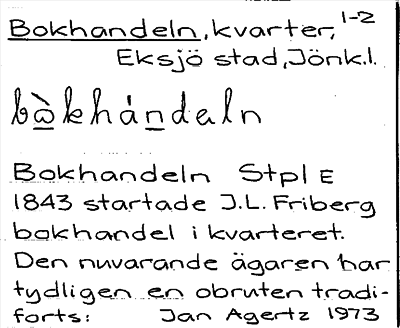 Bokhandeln, kvarter, 1-2
Eksjö stad, Jönk.l.
bòkhándeln
Bokhandeln Stpl E
1843 startade J.L. Friberg
bokhandel i kvarteret.
Den nuvarande ägaren har
tydligen en obruten tradi-
forts: Jan Agertz 1973